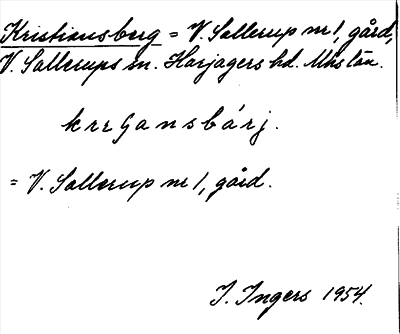 Kristiansberg = V. Sallerup nr 1, gård,
V. Sallerups sn. Harjagers hd. Mhs län.
krɪʂansbárj.
= V. Sallerup nr 1, gård.
I. Ingers 1954.